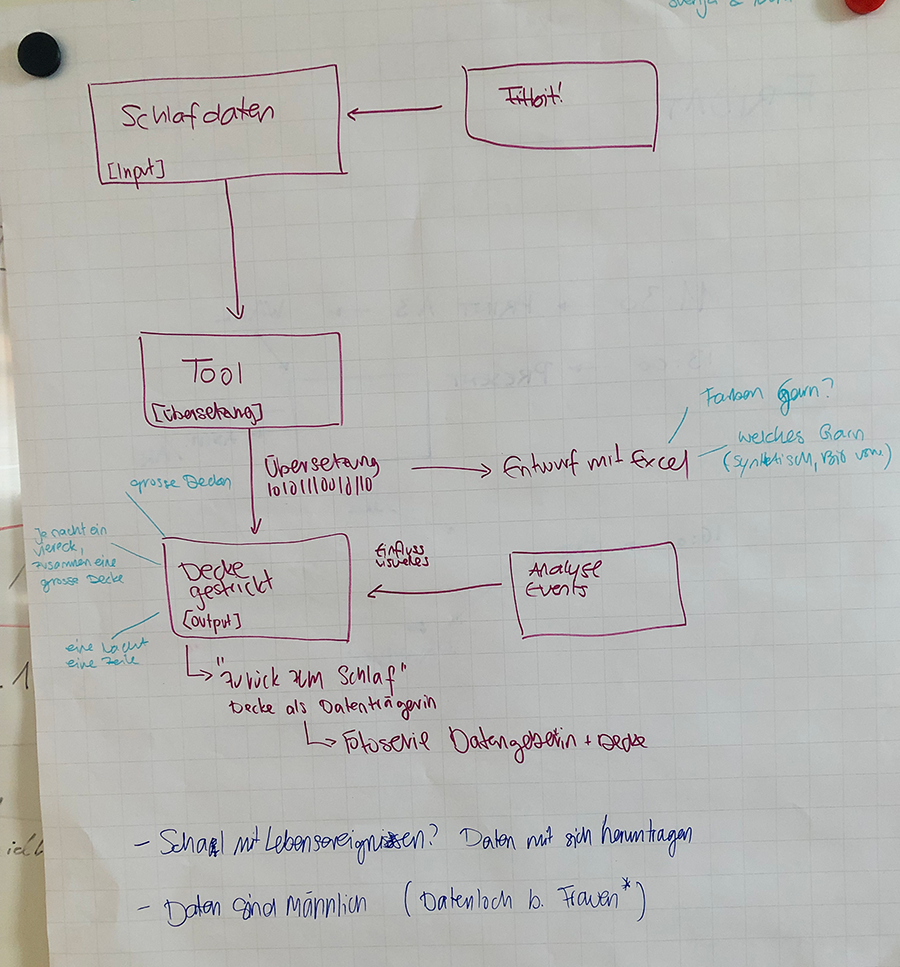 Schlafdaten
[Input]
Fitbit!
Tool
[Übersetzung]
Übersetzung
Entwurf mit Excel
Farben Garn?
welches Garn
(synthetisch, Bio usw.)
grosse Decken
Je nacht ein
viereck,
zusammen eine
grosse Decke
eine Nacht
eine Zeile
Decke
gestrickt
[Output]
Einfluss
visuelles
Analyse
Events
"zurück zum Schlaf"
Decke als Datenträgerin
Fotoserie Datengeberin + Decke
- Schal mit Lebensereignissen? Daten mit sich herumtragen
- Daten sind männlich (Datenloch b. Frauen*)